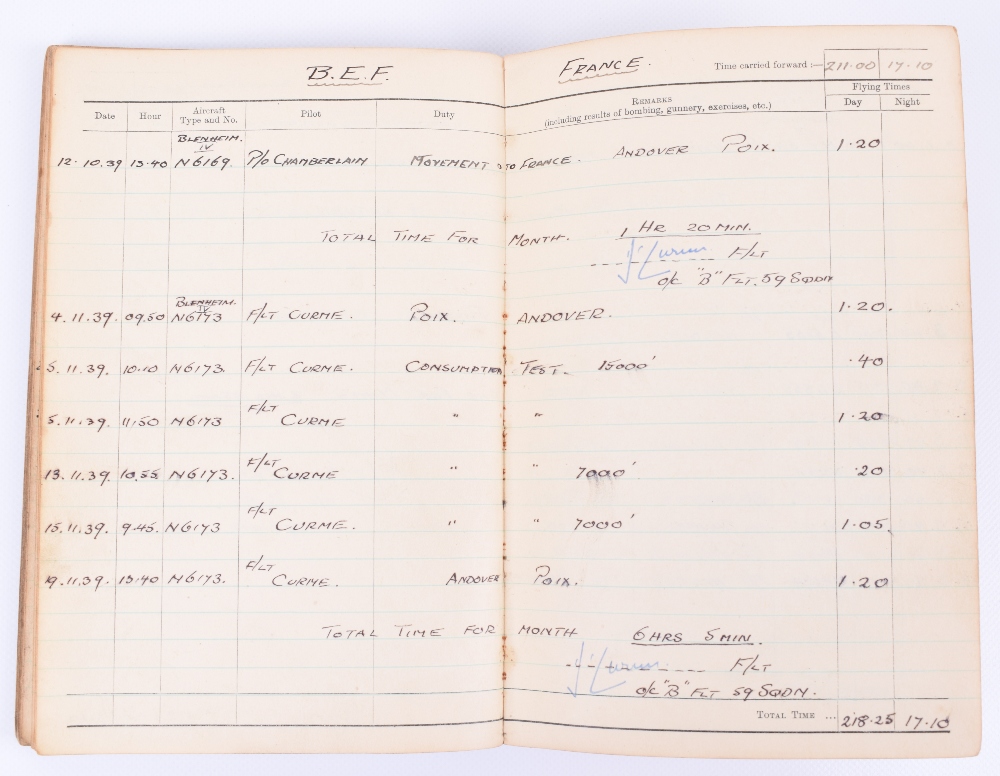 B.E.F. FRANCE. Time carried forward :— 211·00 17·10
Flying Times
Date Hour Aircraft Type and No. Pilot Duty REMARKS (including results of bombing, gunnery, exercises, etc.) Day Night
BLENHEIM. IV
12·10.39 13·40 N6169. P/O CHAMBERLAIN MOVEMENT TO FRANCE. ANDOVER POIX. 1·20
TOTAL TIME FOR MONTH. 1 HR 20 MIN.
F/LT
O/C "B" FLT. 59 SQDN
BLENHEIM. IV
4.11.39. 09.50 N6173 F/LT CURME. POIX. ANDOVER. 1·20.
5.11.39. 10·10 N6173. F/LT CURME. CONSUMPTION TEST. 15000' ·40
5.11.39. 11.50 N6173 F/LT CURME " " 1·20
13.11.39. 10.55 N6173. F/LT CURME " " 7000' ·20
15.11.39. 9.45. N6173 F/LT CURME. " " 7000' 1·05.
19.11.39. 13·40 N6173. F/LT CURME. ANDOVER POIX. 1·20
TOTAL TIME FOR MONTH 6 HRS 5 MIN.
F/LT
O/C "B" FLT 59 SQDN.
TOTAL TIME ... 218·25 17·10